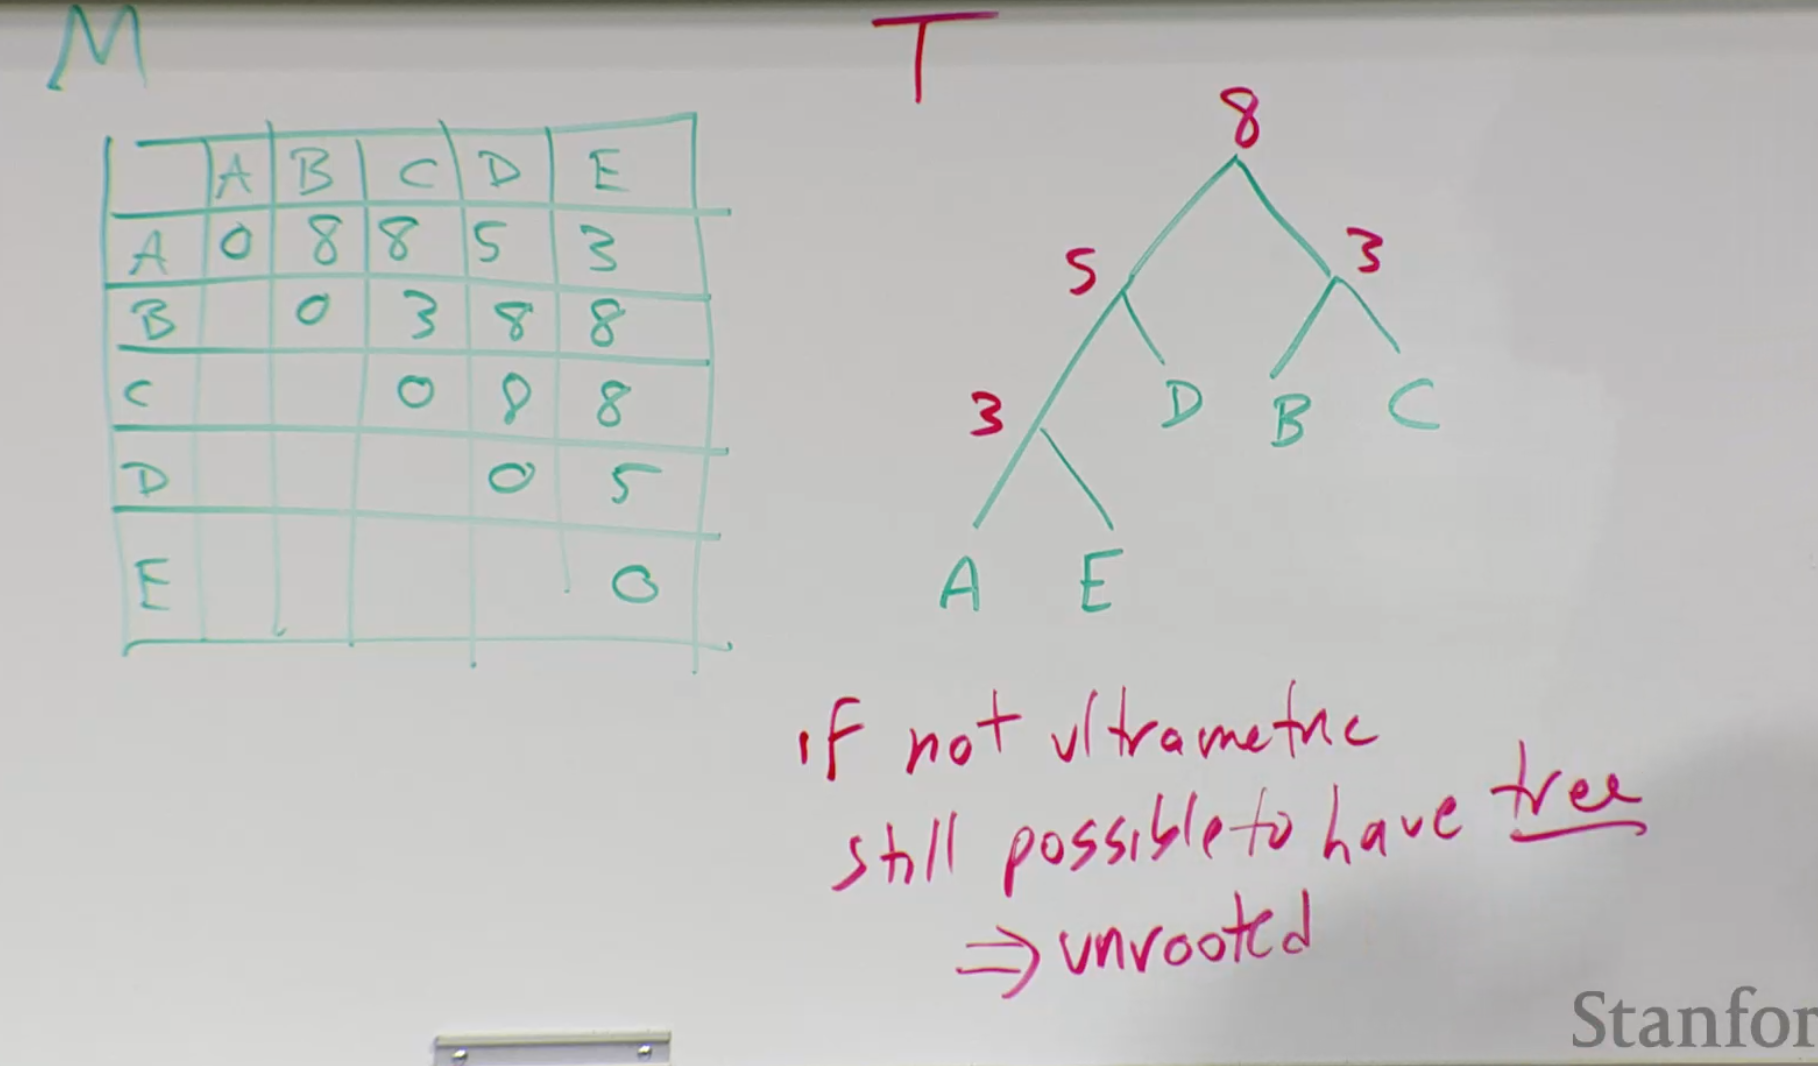 M
T
A B C D E
A 0 8 8 5 3
B 0 3 8 8
C 0 8 8
D 0 5
E 0
8
5 3
3 D B C
A E
if not ultrametric
still possible to have tree
⇒ unrooted
Stanfor